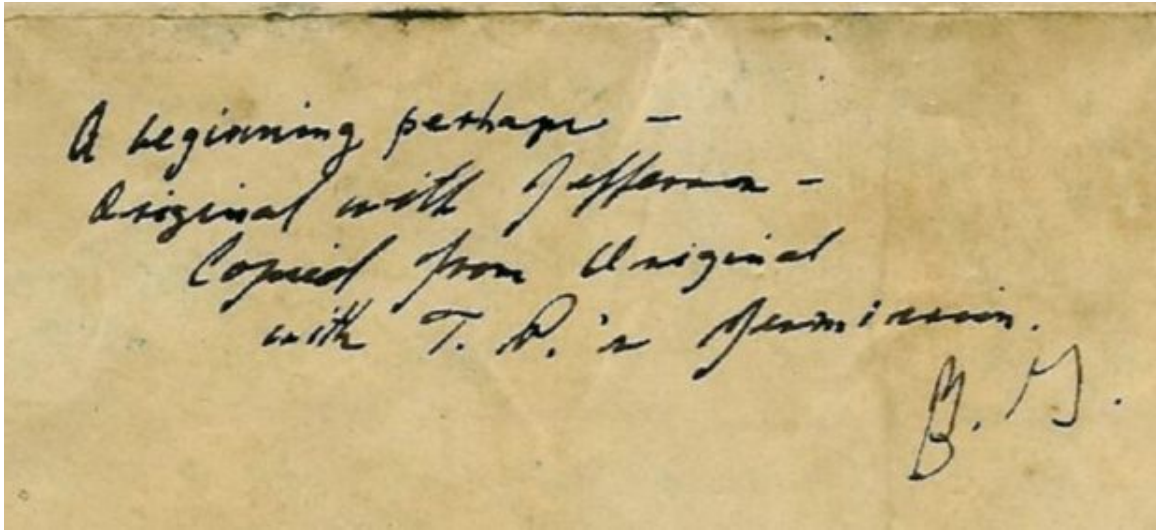 A beginning perhaps -
Original with Jefferson -
Copied from Original
with T. P.'s permission.